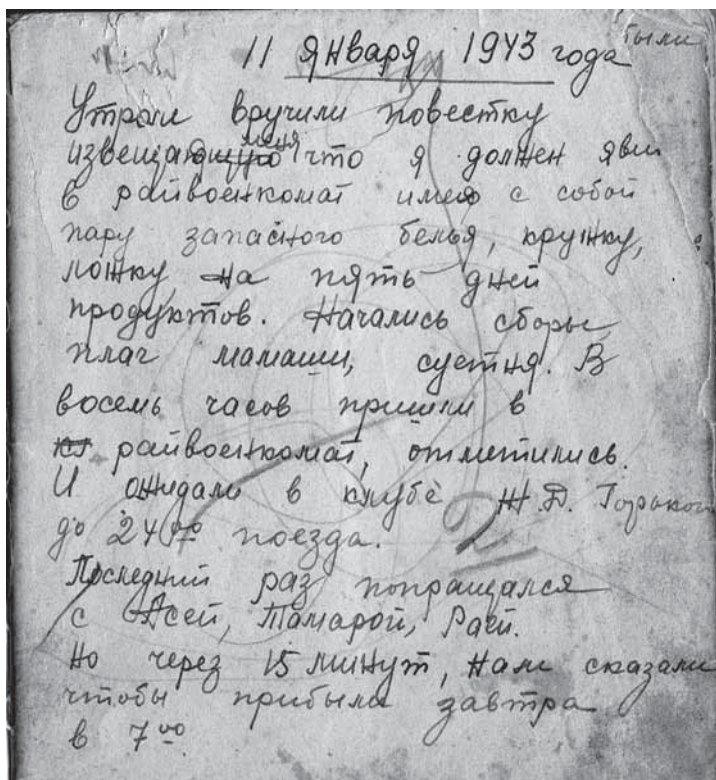 11 января 1943 года
Утром вручили повестку
извещающую меня что я должен яви
в райвоенкомат имея с собой
пару запасного белья, кружку,
ложку, на пять дней
продуктов. Начались сборы,
плач мамаши, суетня. В
восемь часов пришли в
кл райвоенкомат, отметились.
И ожидали в клубе Ж.Д.
до 24 00 поезда.
Последний раз попращался
с Асей, Тамарой, Раей.
Но через 15 минут, нам сказали
чтобы прибыли завтра
в 7 00
2